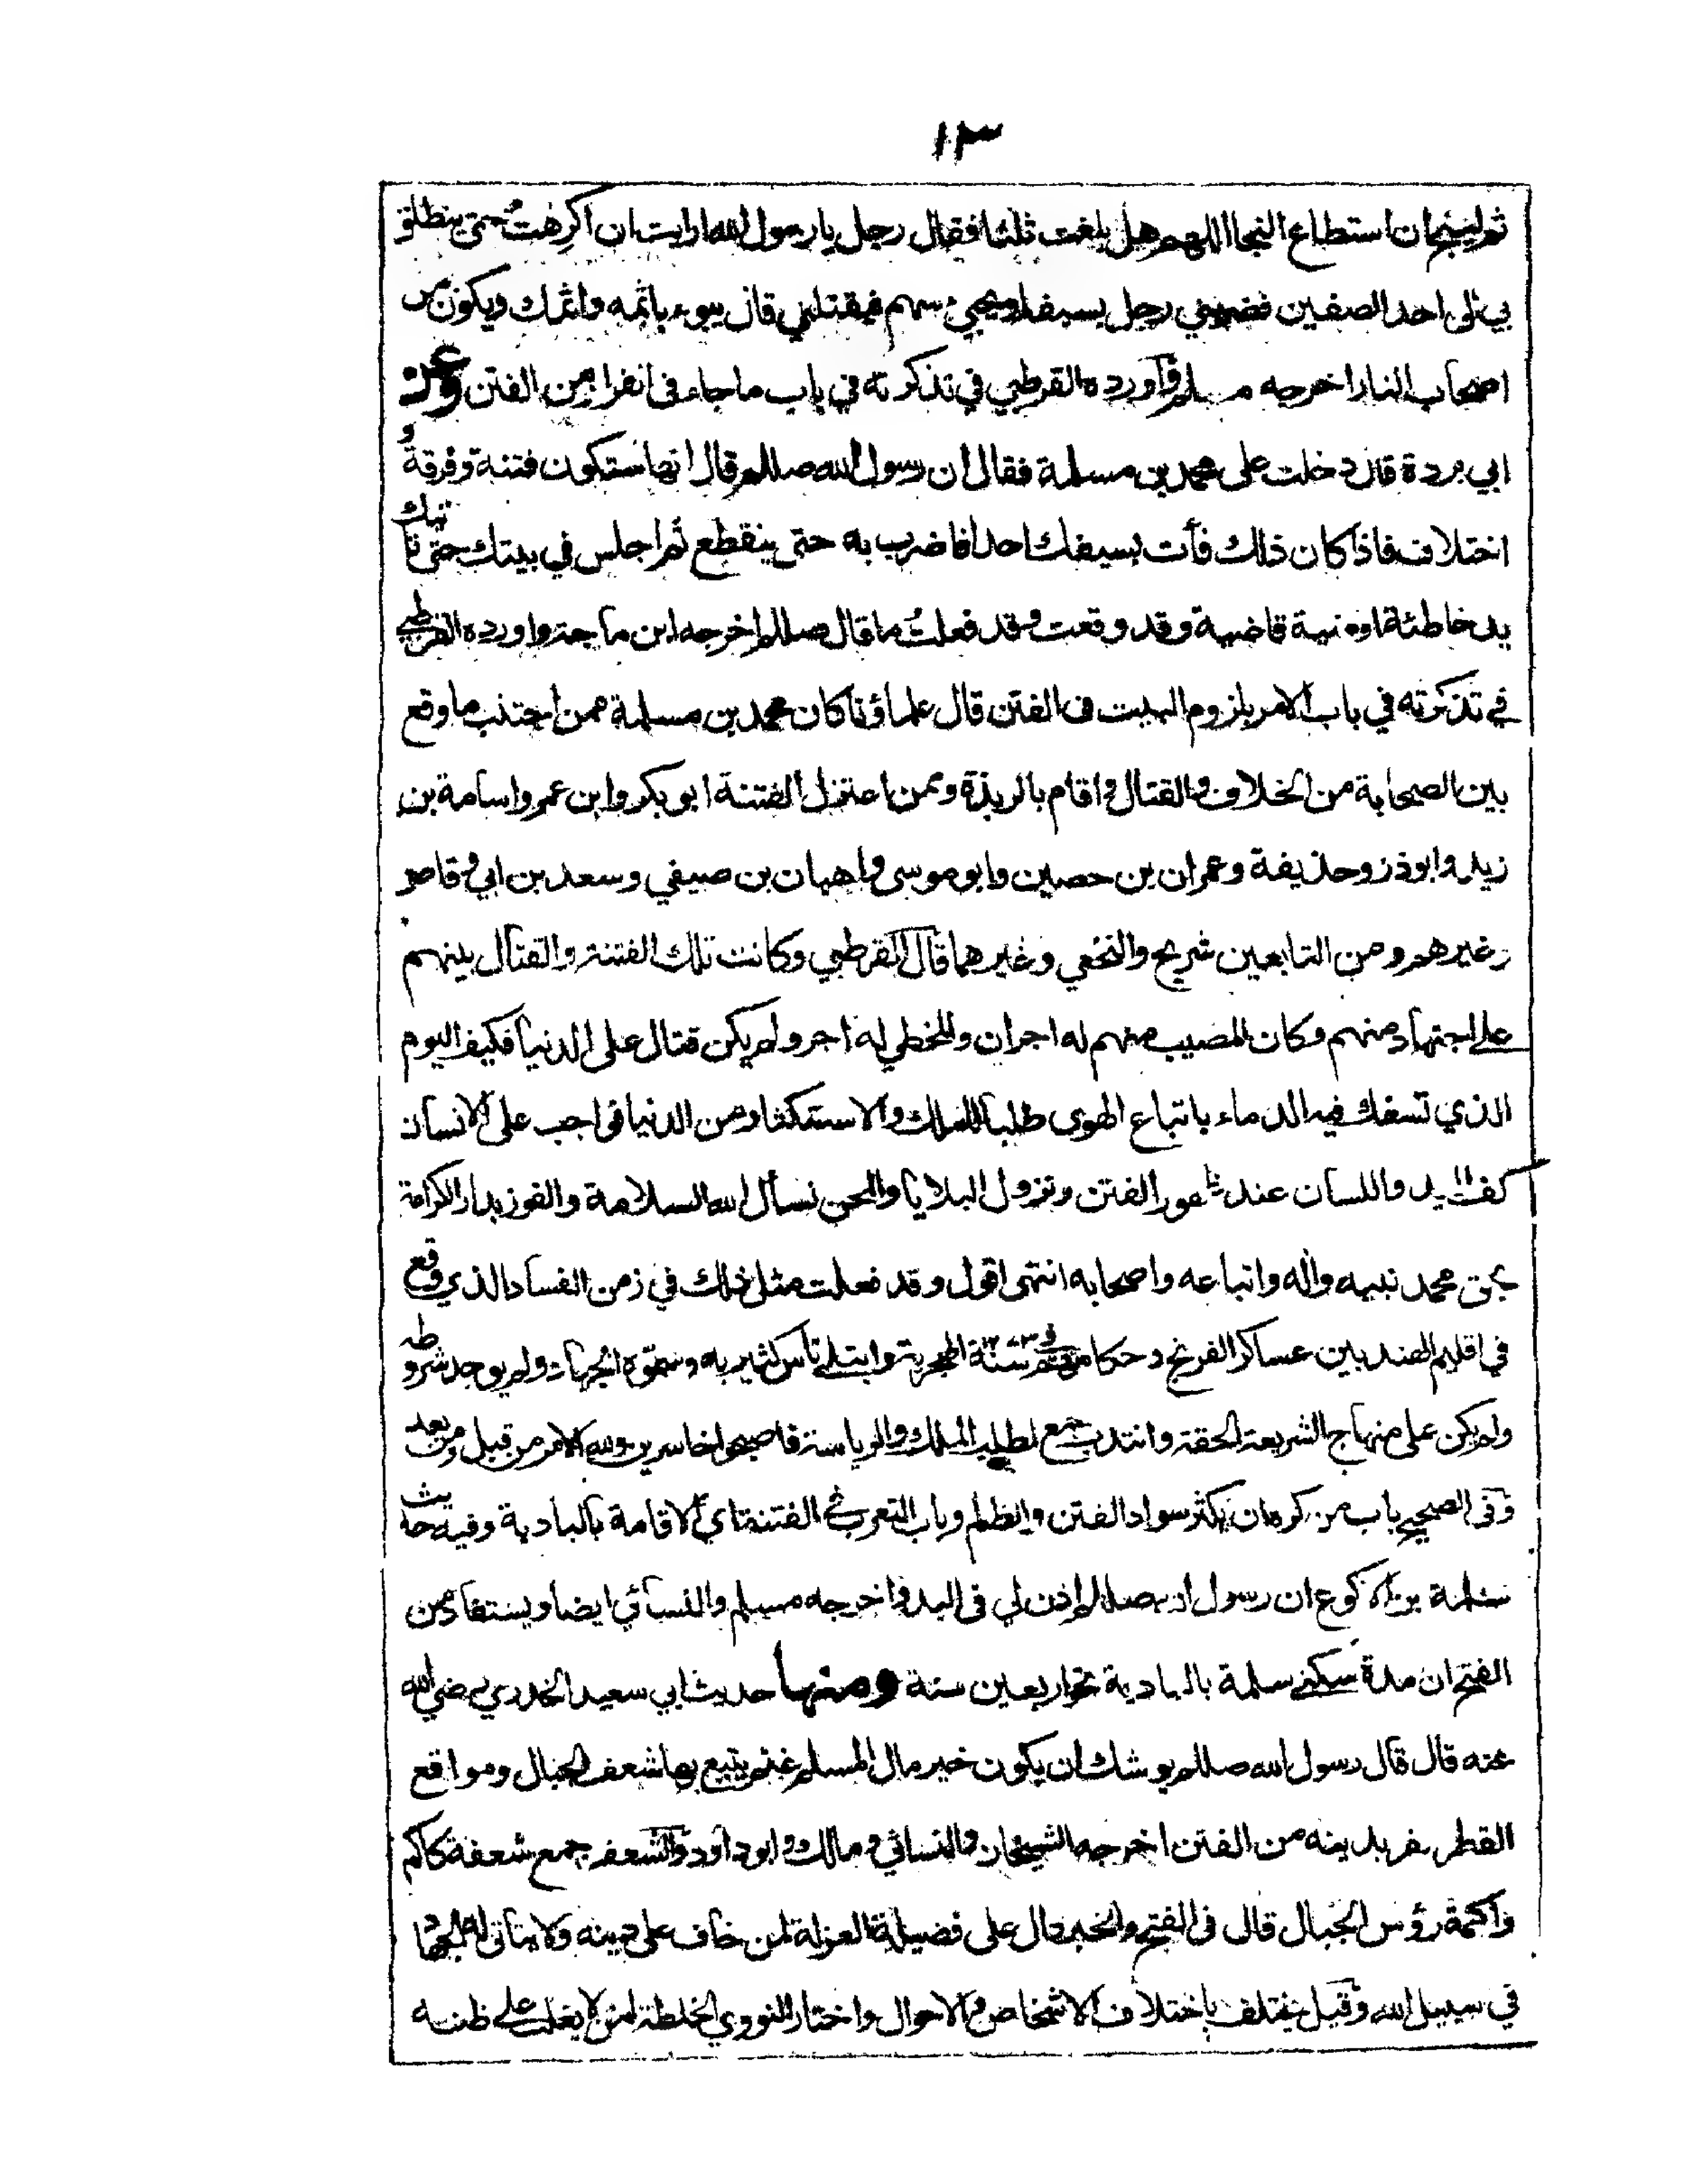 ١٣
ثم لينج ان استطاع النجا اللهم هل بلغت ثلثا فقال رجل يا رسول الله ارايت ان اكرهت حتى ينطلق
بي الى احد الصفين فضربني رجل بسيفه او يجيئ سهم فيقتلني قال يبوء باثمه واثمك ويكون من
اصحاب النار اخرجه مسلم واورده القرطبي في تذكرته في باب ما جاء فى الفرار من الفتن وعن
ابي بردة قال دخلت على محمد بن مسلمة فقال ان رسول الله صللم قال انها ستكون فتنة وفرقة و
اختلاف فاذا كان ذلك فأت بسيفك احدا فاضرب به حتى ينقطع ثم اجلس في بيتك حتى تأتيك
يد خاطئة او منية قاضية وقد وقعت وقد فعلت ما قال صللم اخرجه ابن ماجة واورده القرطبي
في تذكرته في باب الامر بلزوم البيت فى الفتن قال علماؤنا كان محمد بن مسلمة ممن اجتنب ما وقع
بين الصحابة من الخلاف والقتال واقام بالربذة وممن اعتزل الفتنة ابو بكر وابن عمر واسامة بن
زيد وابوذر وحذيفة وعمران بن حصين وابو موسى واهبان بن صيفي وسعد بن ابي وقاص
وغيرهم ومن التابعين شريح والنخعي وغيرهما قال القرطبي وكانت تلك الفتنة والقتال بينهم
على اجتهاد منهم وكان المصيب منهم له اجران والمخطي له اجر ولم يكن قتال على الدنيا فكيف اليوم
الذي تسفك فيه الدماء باتباع الهوى طلبا للملك والاستكثار من الدنيا فواجب على الانسان
كف اليد واللسان عند ظهور الفتن ونزول البلايا والمحن نسأل الله السلامة والفوز بدار الكرامة
بحق محمد نبيه واله واتباعه واصحابه انتهى اقول وقد فعلت مثل ذلك في زمن الفساد الذي وقع
في اقليم الهند بين عساكر الفرنج وحكامهم سنة الهجرية وابتلى ناس كثير به وسموه الجهاد ولم يوجد شروطه
ولم يكن على منهاج الشريعة الحقة وانتدب جمع لطلب الملك والرياسة فاصبحوا خاسرين ولله الامر من قبل ومن بعد
وفى الصحيح باب من كره ان يكثر سواد الفتن والظلم وباب التعرب في الفتنة اي الاقامة بالبادية وفيه حديث
سلمة بن الاكوع ان رسول الله صللم اذن لي فى البدو اخرجه مسلم والنسائي ايضا ويستفاد من
الفتح ان مدة سكنى سلمة بالبادية نحو اربعين سنة ومنها حديث ابي سعيد الخدري رضي الله
عنه قال قال رسول الله صللم يوشك ان يكون خير مال المسلم غنم يتبع بها شعف الجبال ومواقع
القطر يفر بدينه من الفتن اخرجه الشيخان والنسائي ومالك وابو داود والشعف جمع شعفة كاكم
واكمة رؤس الجبال قال فى الفتح والخبر دال على فضيلة العزلة لمن خاف على دينه ولا يتأتى له الجهاد
في سبيل الله وقيل يختلف باختلاف الاشخاص والاحوال واختار النووي الخلطة لمن لا يغلب على ظنه